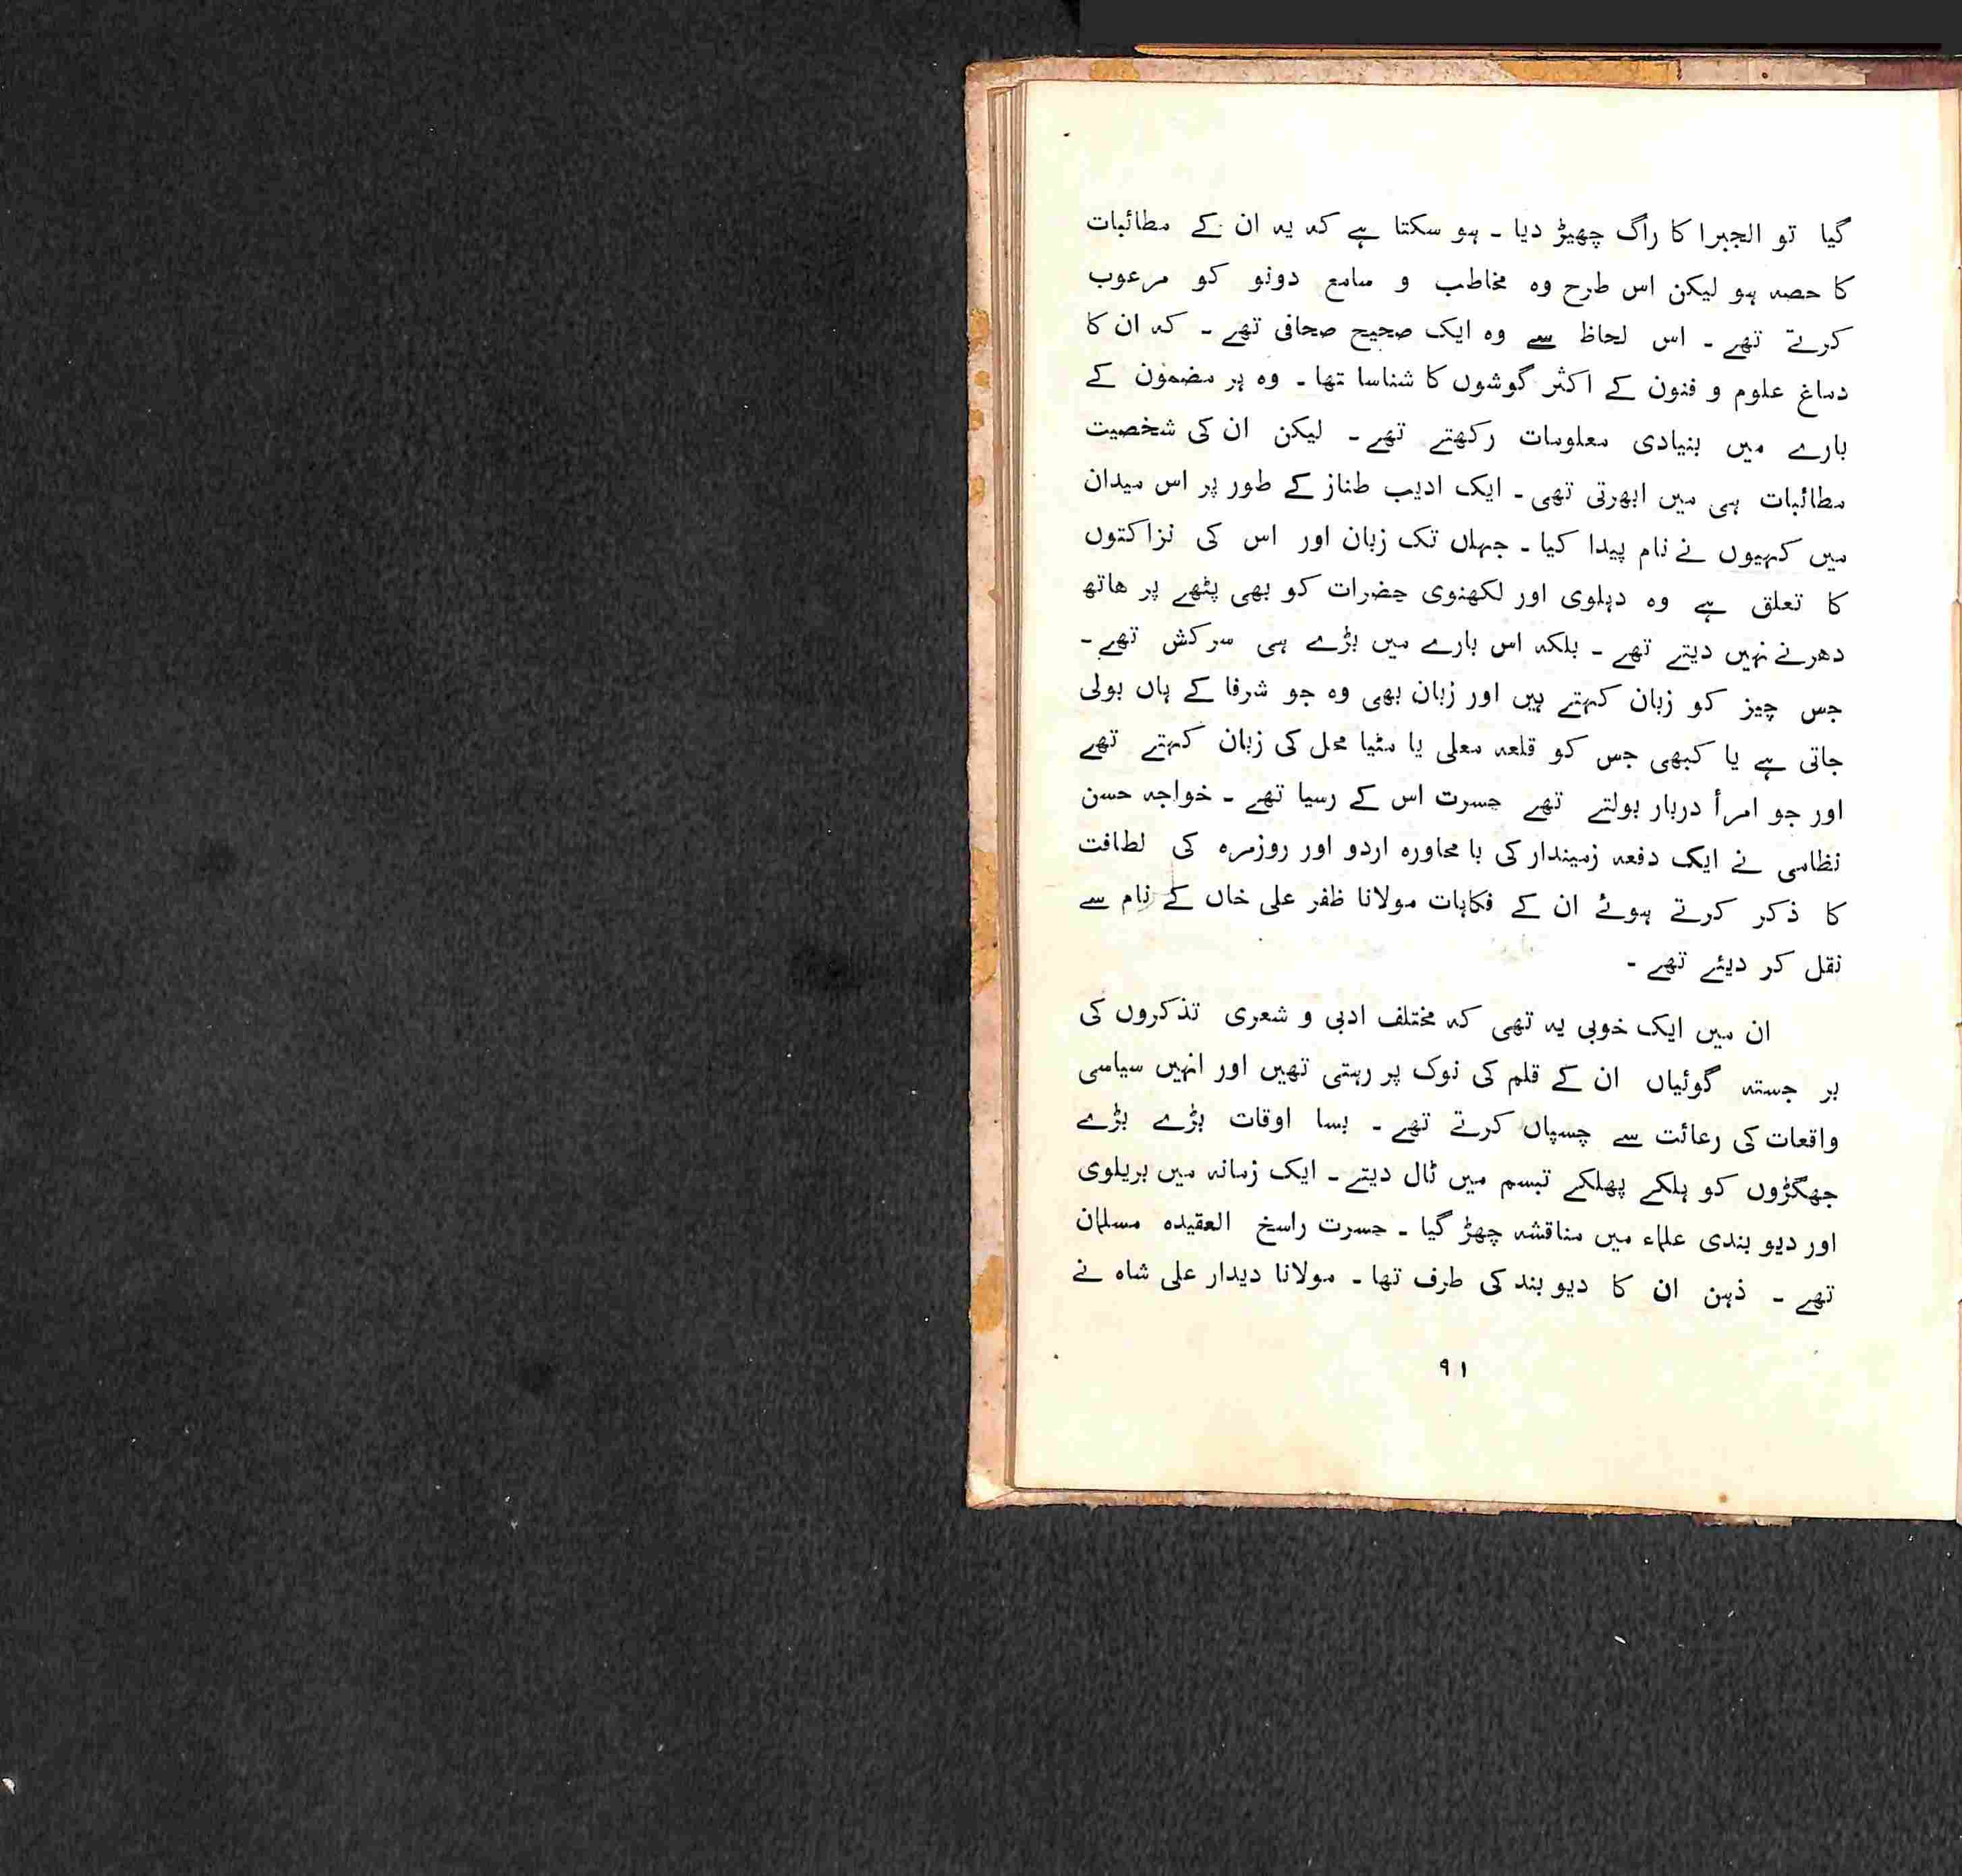 گیا تو الجبرا کا راگ چھیڑ دیا ۔ ہو سکتا ہے کہ یہ ان کے مطائبات
کا حصہ ہو لیکن اس طرح وہ مخاطب و سامع دونو کو مرعوب
کرتے تھے ۔ اس لحاظ سے وہ ایک صحیح صحافی تھے ۔ کہ ان کا
دماغ علوم و فنون کے اکثر گوشوں کا شناسا تھا ۔ وہ ہر مضمون کے
بارے میں بنیادی معلومات رکھتے تھے ۔ لیکن ان کی شخصیت
مطائبات ہی میں ابھرتی تھی ۔ ایک ادیب طناز کے طور پر اس میدان
میں کہیوں نے نام پیدا کیا ۔ جہاں تک زبان اور اس کی نزاکتوں
کا تعلق ہے وہ دہلوی اور لکھنوی حضرات کو بھی پٹھے پر ھاتھ
دھرنے نہیں دیتے تھے ۔ بلکہ اس بارے میں بڑے ہی سرکش تھے ۔
جس چیز کو زبان کہتے ہیں اور زبان بھی وہ جو شرفا کے ہاں بولی
جاتی ہے یا کبھی جس کو قلعہ معلی یا مٹیا محل کی زبان کہتے تھے
اور جو امرأ دربار بولتے تھے حسرت اس کے رسیا تھے ۔ خواجہ حسن
نظامی نے ایک دفعہ زمیندار کی با محاورہ اردو اور روزمرہ کی لطافت
کا ذکر کرتے ہوئے ان کے فکاہات مولانا ظفر علی خاں کے نام سے
نقل کر دیئے تھے ۔
ان میں ایک خوبی یہ تھی کہ مختلف ادبی و شعری تذکروں کی
بر جستہ گوئیاں ان کے قلم کی نوک پر رہتی تھیں اور انہیں سیاسی
واقعات کی رعائت سے چسپاں کرتے تھے ۔ بسا اوقات بڑے بڑے
جھگڑوں کو ہلکے پھلکے تبسم میں ٹال دیتے ۔ ایک زمانہ میں بریلوی
اور دیو بندی علماء میں مناقشہ چھڑ گیا ۔ حسرت راسخ العقیدہ مسلمان
تھے ۔ ذہن ان کا دیو بند کی طرف تھا ۔ مولانا دیدار علی شاہ نے
۹۱